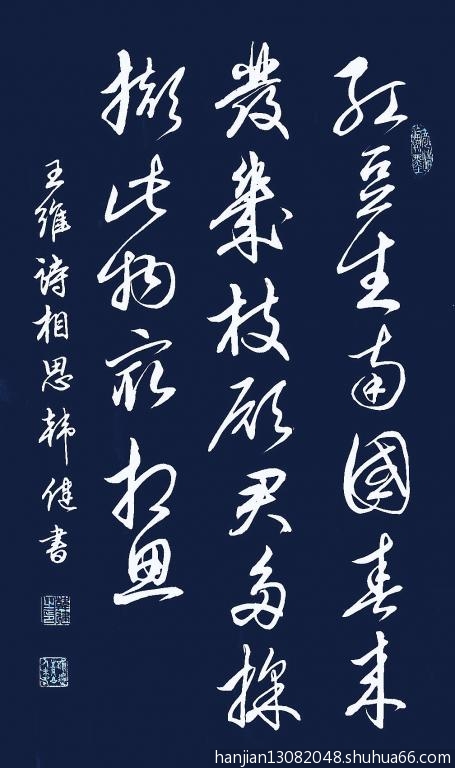 红豆生南國春来
發幾枝願君多採
擷此物最相思
王維詩相思韩健書
hanjian13082048.shuhua66.com